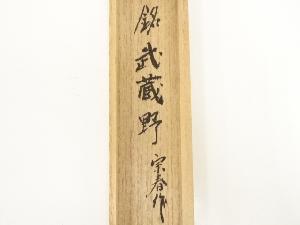 銘 武蔵野
宗春作